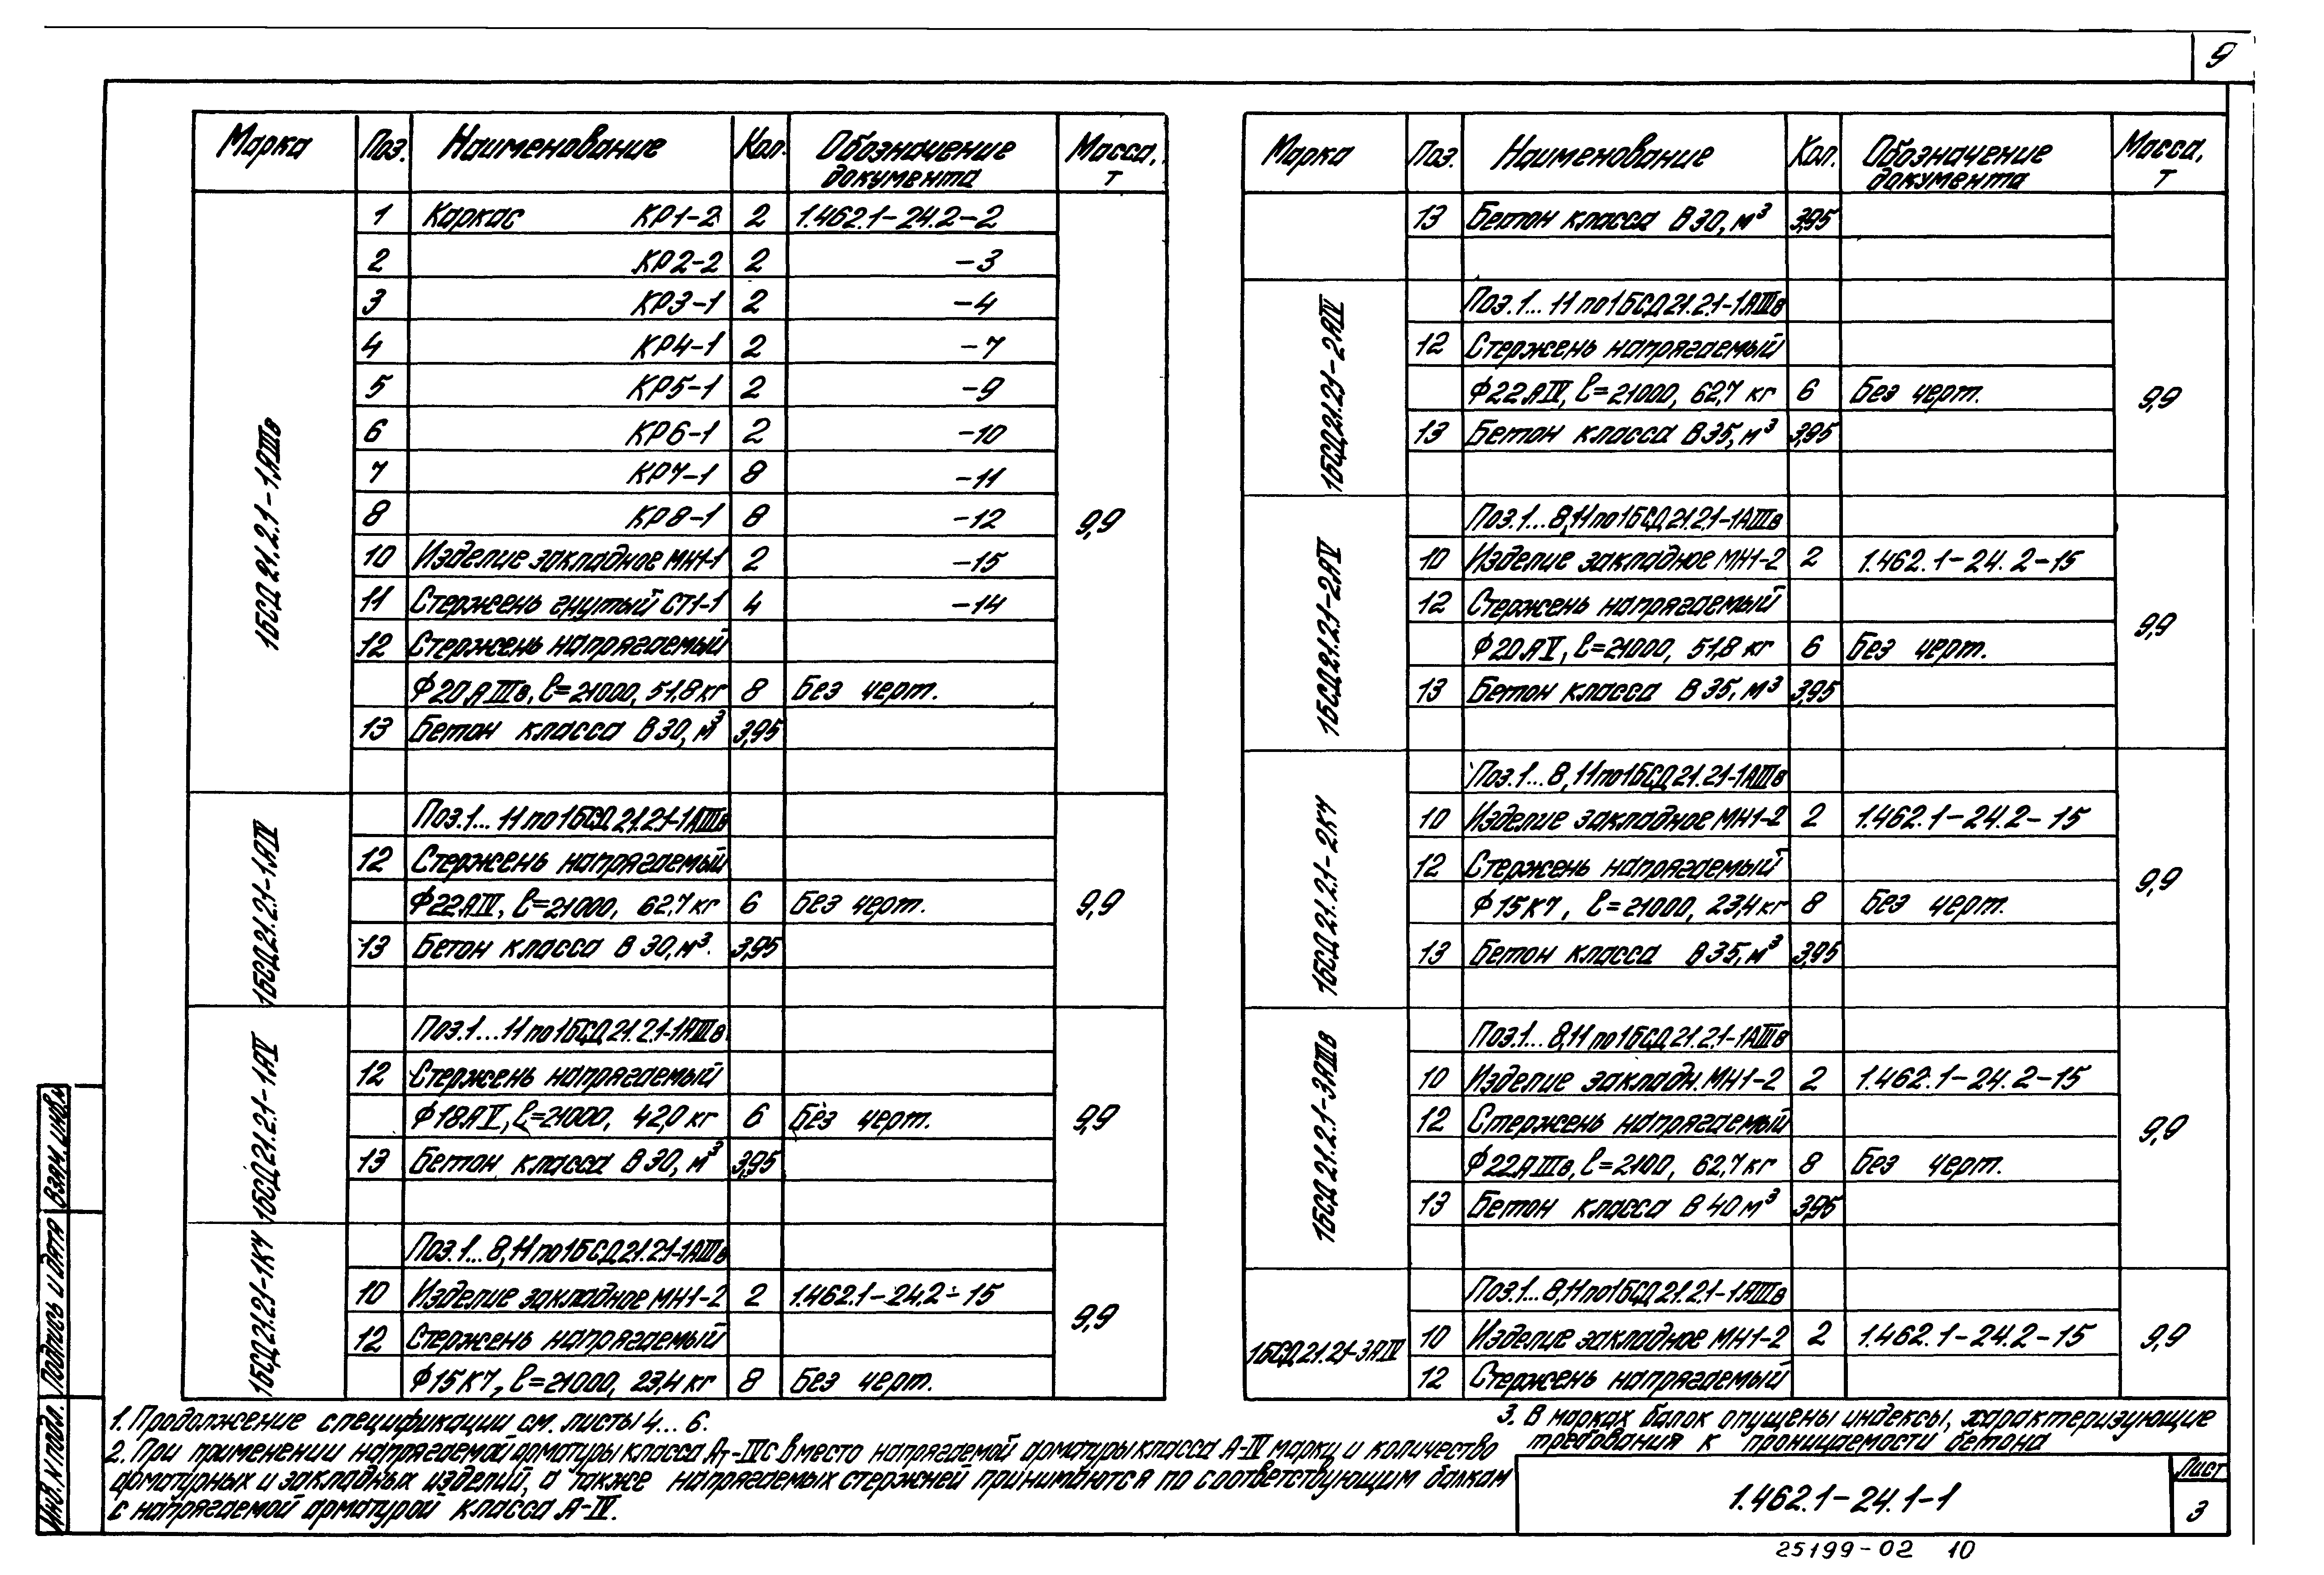 9
Марка Поз. Наименование Кол. Обозначение документа Масса, т
1БСД 21.2.1-1АIIIв
1 Каркас КР1-2 2 1.462.1-24.2-2
2 КР2-2 2 -3
3 КР3-1 2 -4
4 КР4-1 2 -7
5 КР5-1 2 -9
6 КР6-1 2 -10
7 КР7-1 8 -11
8 КР8-1 8 -12
9,9
10 Изделие закладное МН1-1 2 -15
11 Стержень гнутый СТ1-1 4 -14
12 Стержень напрягаемый
Ф20АIIIв, ℓ=21000, 51,8 кг 8 Без черт.
13 Бетон класса В30, м³ 3,95
1БСД21.2.1-1АIV
Поз.1...11 по 1БСД 21.2.1-1АIIIв
12 Стержень напрягаемый
Ф22АIV, ℓ=21000, 62,7 кг 6 Без черт. 9,9
13 Бетон класса В 30, м³. 3,95
1БСД21.2.1-1АV
Поз.1...11 по 1БСД 21.2.1-1АIIIв
12 Стержень напрягаемый
Ф18АV, ℓ=21000, 42,0 кг 6 Без черт. 9,9
13 Бетон класса В 30, м³ 3,95
1БСД21.2.1-1К7
Поз.1...8,11 по 1БСД 21.2.1-1АIIIв
10 Изделие закладное МН1-2 2 1.462.1-24.2-15
12 Стержень напрягаемый 9,9
Ф15К7, ℓ=21000, 23,4 кг 8 Без черт.
Марка Поз. Наименование Кол. Обозначение документа Масса, т
13 Бетон класса В 30, м³ 3,95
1БСД21.2.1-2АIV
Поз.1...11 по 1БСД 21.2.1-1АIIIв
12 Стержень напрягаемый
Ф22АIV, ℓ=21000, 62,7 кг 6 Без черт. 9,9
13 Бетон класса В35, м³ 3,95
1БСД21.2.1-2АV
Поз.1...8,11 по 1БСД 21.2.1-1АIIIв
10 Изделие закладное МН1-2 2 1.462.1-24.2-15
12 Стержень напрягаемый 9,9
Ф20АV, ℓ=21000, 51,8 кг 6 Без черт.
13 Бетон класса В35, м³ 3,95
1БСД 21.2.1-2К7
Поз.1...8,11 по 1БСД 21.2.1-1АIIIв
10 Изделие закладное МН1-2 2 1.462.1-24.2-15
12 Стержень напрягаемый 9,9
Ф15К7, ℓ=21000, 23,4 кг 8 Без черт.
13 Бетон класса В35, м³ 3,95
1БСД 21.2.1-3АIIIв
Поз.1...8,11 по 1БСД 21.2.1-1АIIIв
10 Изделие закладн. МН1-2 2 1.462.1-24.2-15
12 Стержень напрягаемый 9,9
Ф22АIIIв, ℓ=2100, 62,7 кг 8 Без черт.
13 Бетон класса В 40 м³ 3,95
Поз.1...8,11 по 1БСД 21.2.1-1АIIIв
1БСД21.2.1-3АIV 10 Изделие закладное МН1-2 2 1.462.1-24.2-15 9,9
12 Стержень напрягаемый
1. Продолжение спецификации см. листы 4...6.
2. При применении напрягаемой арматуры класса Ат-IVС вместо напрягаемой арматуры класса А-IV марку и количество
арматурных и закладных изделий, а также напрягаемых стержней принимаются по соответствующим балкам
с напрягаемой арматурой класса А-IV.
3. В марках балок опущены индексы, характеризующие
требования к проницаемости бетона
1.462.1-24.1-1
Лист
3
Взам. инв. №
Подпись и дата
Инв. № подл.
25199-02 10